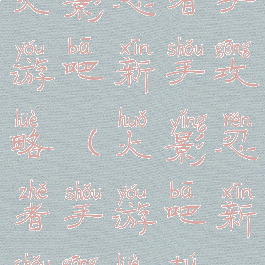 yóu bā xīn shǒu gōng
游吧新手攻
lüè huǒ yǐng rěn
略（火影忍
zhě shǒu yóu bā xīn
者手游吧新